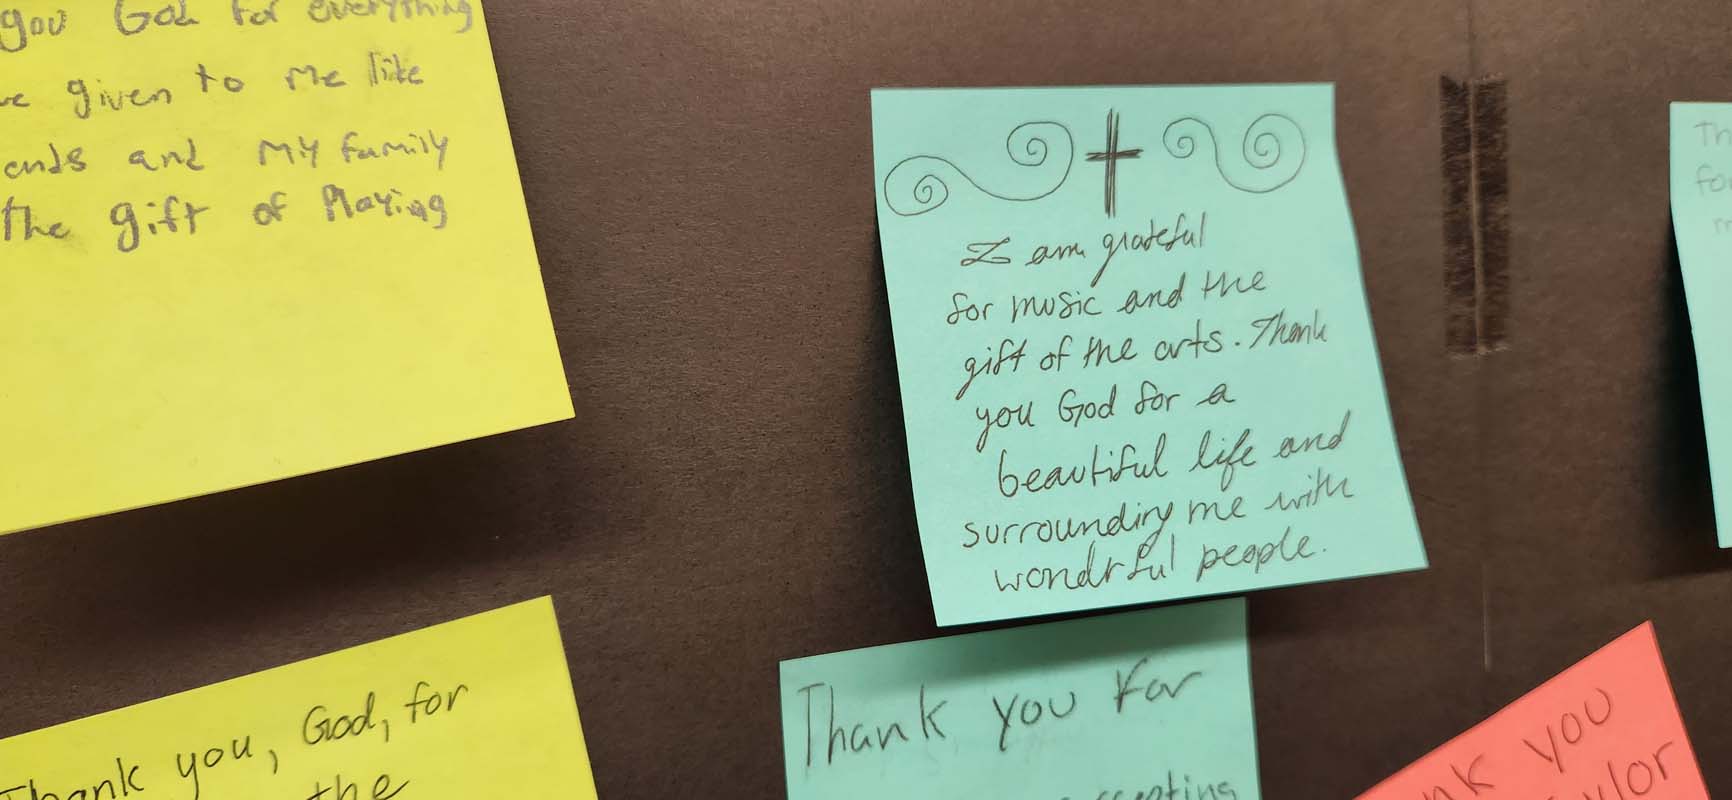 you God for everything
given to me like
and my family
the gift of Playing
I am grateful
for music and the
gift of the arts. Thank
you God for a
beautiful life and
surrounding me with
wondrful people.
Thank you, God, for
the
Thank you for
you